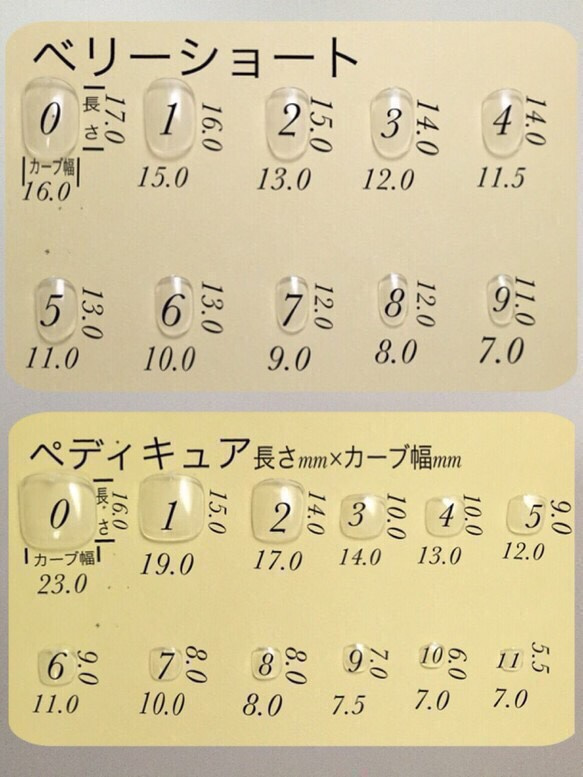 ベリーショート
0 長さ 17.0 1 16.0 2 15.0 3 14.0 4 14.0
カーブ幅
16.0 15.0 13.0 12.0 11.5
5 13.0 6 13.0 7 12.0 8 12.0 9 11.0
11.0 10.0 9.0 8.0 7.0
ペディキュア長さmm×カーブ幅mm
0 長さ 16.0 1 15.0 2 14.0 3 10.0 4 10.0 5 9.0
カーブ幅
23.0 19.0 17.0 14.0 13.0 12.0
6 9.0 7 8.0 8 8.0 9 7.0 10 6.0 11 5.5
11.0 10.0 8.0 7.5 7.0 7.0